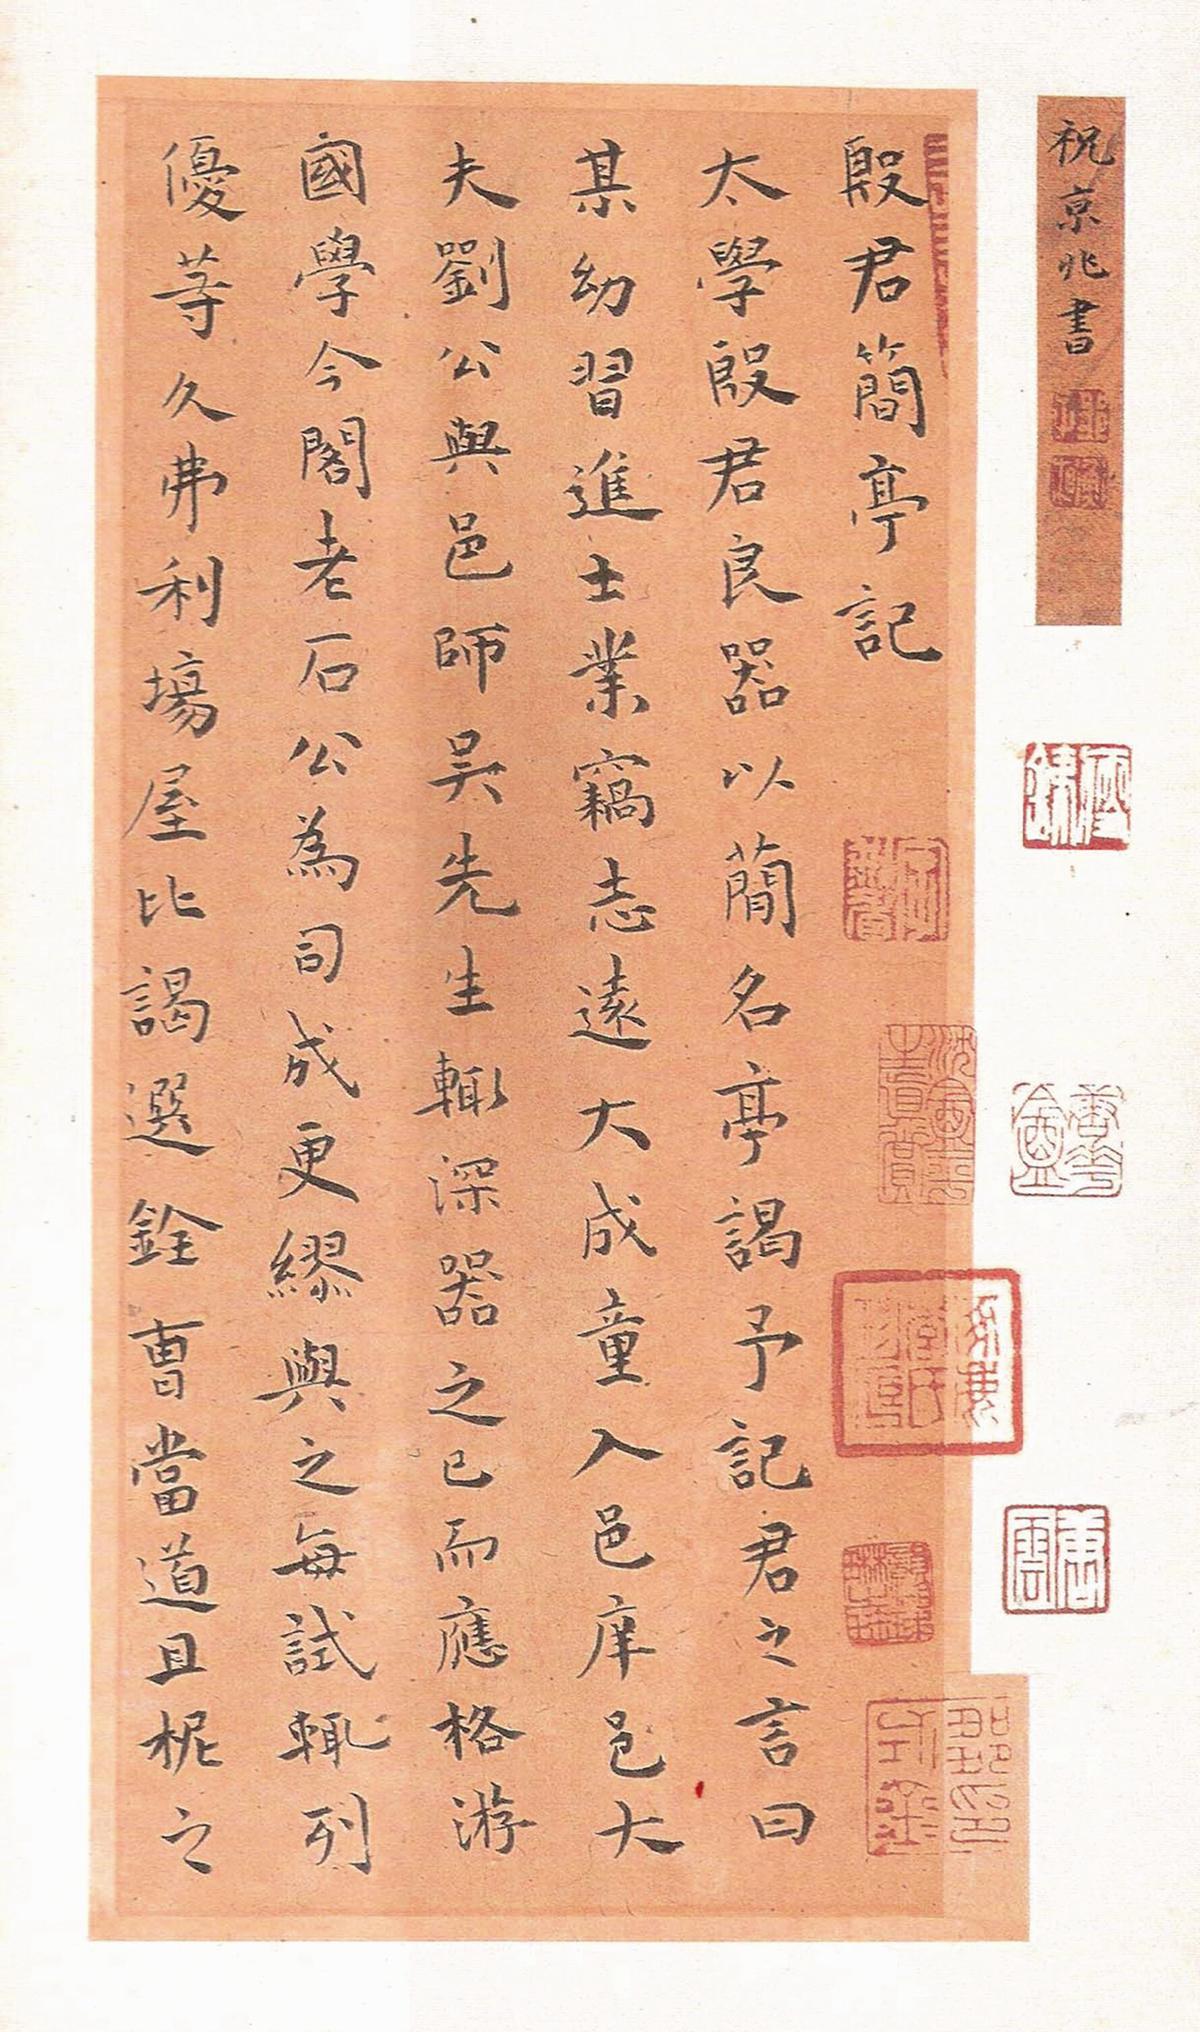 祝京兆書
殷君簡亭記
太學殷君良器以蕳名亭謁予記君之言曰
某幼習進士業竊志遠大成童入邑庠邑大
夫劉公與邑師吴先生輙深器之已而應格游
國學今閣老石公為司成更繆與之每試輙列
優等久弗利場屋比謁選銓曹當道且柅之